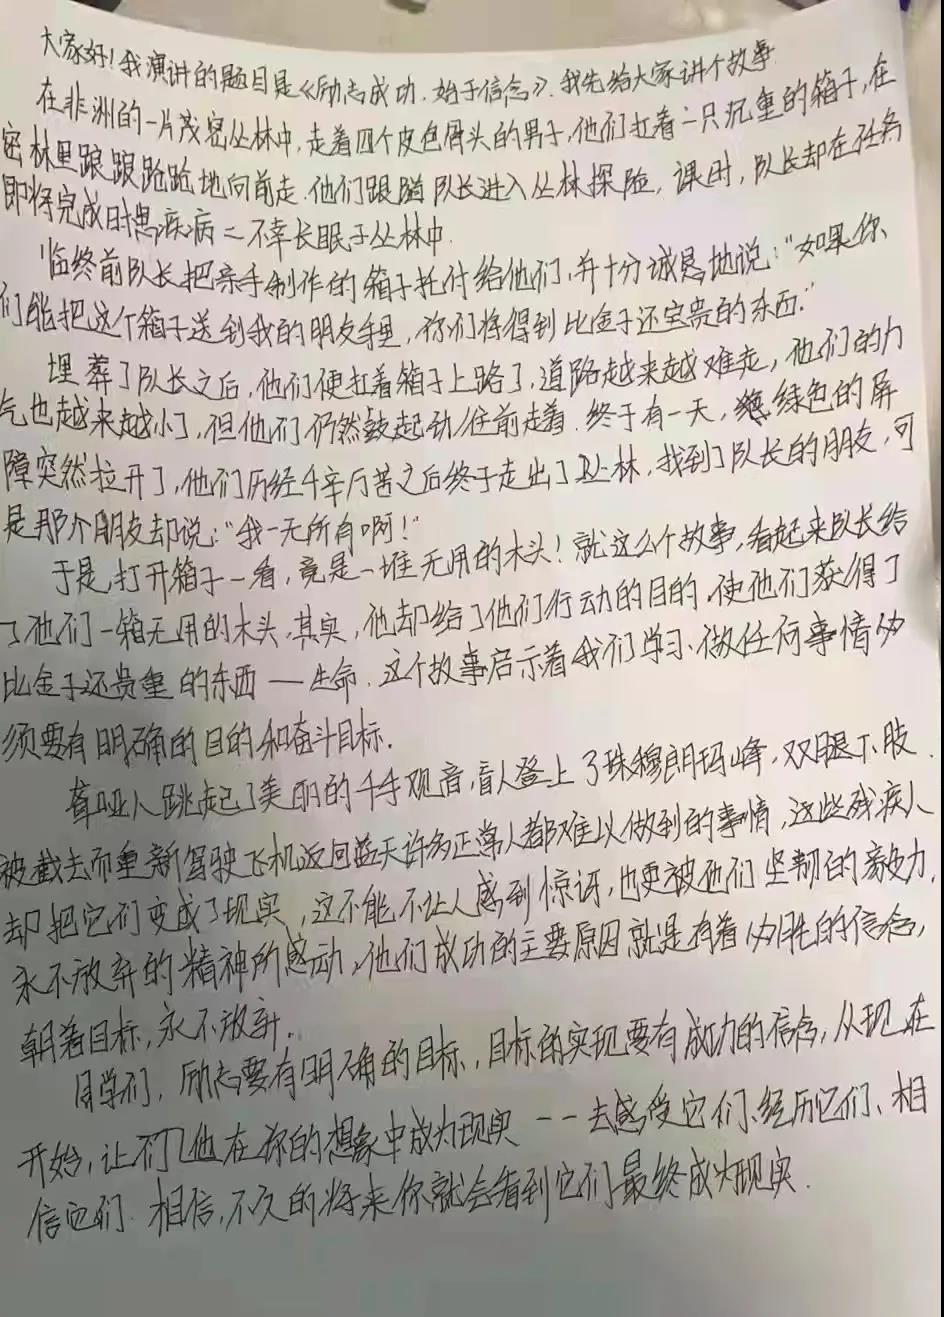 大家好!我演讲的题目是《励志成功,始于信念》.我先给大家讲个故事
在非洲的一片茂密丛林中,走着四个皮包骨头的男子,他们扛着一只沉重的箱子,在
密林里踉踉跄跄地向前走.他们跟随队长进入丛林探险,课时,队长却在任务
即将完成时患疾病二不幸长眠于丛林中.
临终前队长把亲手制作的箱子托付给他们,并十分诚恳地说:"如果你
们能把这个箱子送到我的朋友手里,你们将得到比金子还宝贵的东西."
埋葬了队长之后,他们便扛着箱子上路了,道路越来越难走,他们的力
气也越来越小了,但他们仍然鼓起劲往前走着.终于有一天,绿色的屏
障突然拉开了,他们历经千辛万苦之后终于走出了丛林,找到了队长的朋友,可
是那个朋友却说:"我一无所有啊!"
于是,打开箱子一看,竟是一堆无用的木头!就这么个故事,看起来队长给
了他们一箱无用的木头,其实,他却给了他们行动的目的,使他们获得了
比金子还贵重的东西——生命.这个故事启示着我们学习、做任何事情必
须要有明确的目的和奋斗目标.
聋哑人跳起了美丽的千手观音,盲人登上了珠穆朗玛峰,双腿下肢
被截去而重新驾驶飞机返回蓝天许多正常人都难以做到的事情,这些残疾人
却把它们变成了现实,这不能不让人感到惊讶,也更被他们坚韧的毅力,
永不放弃的精神所感动,他们成功的主要原因就是有着必胜的信念,
朝着目标,永不放弃.
同学们,励志要有明确的目标,目标的实现要有成功的信念,从现在
开始,让们他在你的想象中成为现实--去感受它们、经历它们、相
信它们.相信,不久的将来你就会看到它们最终成为现实.